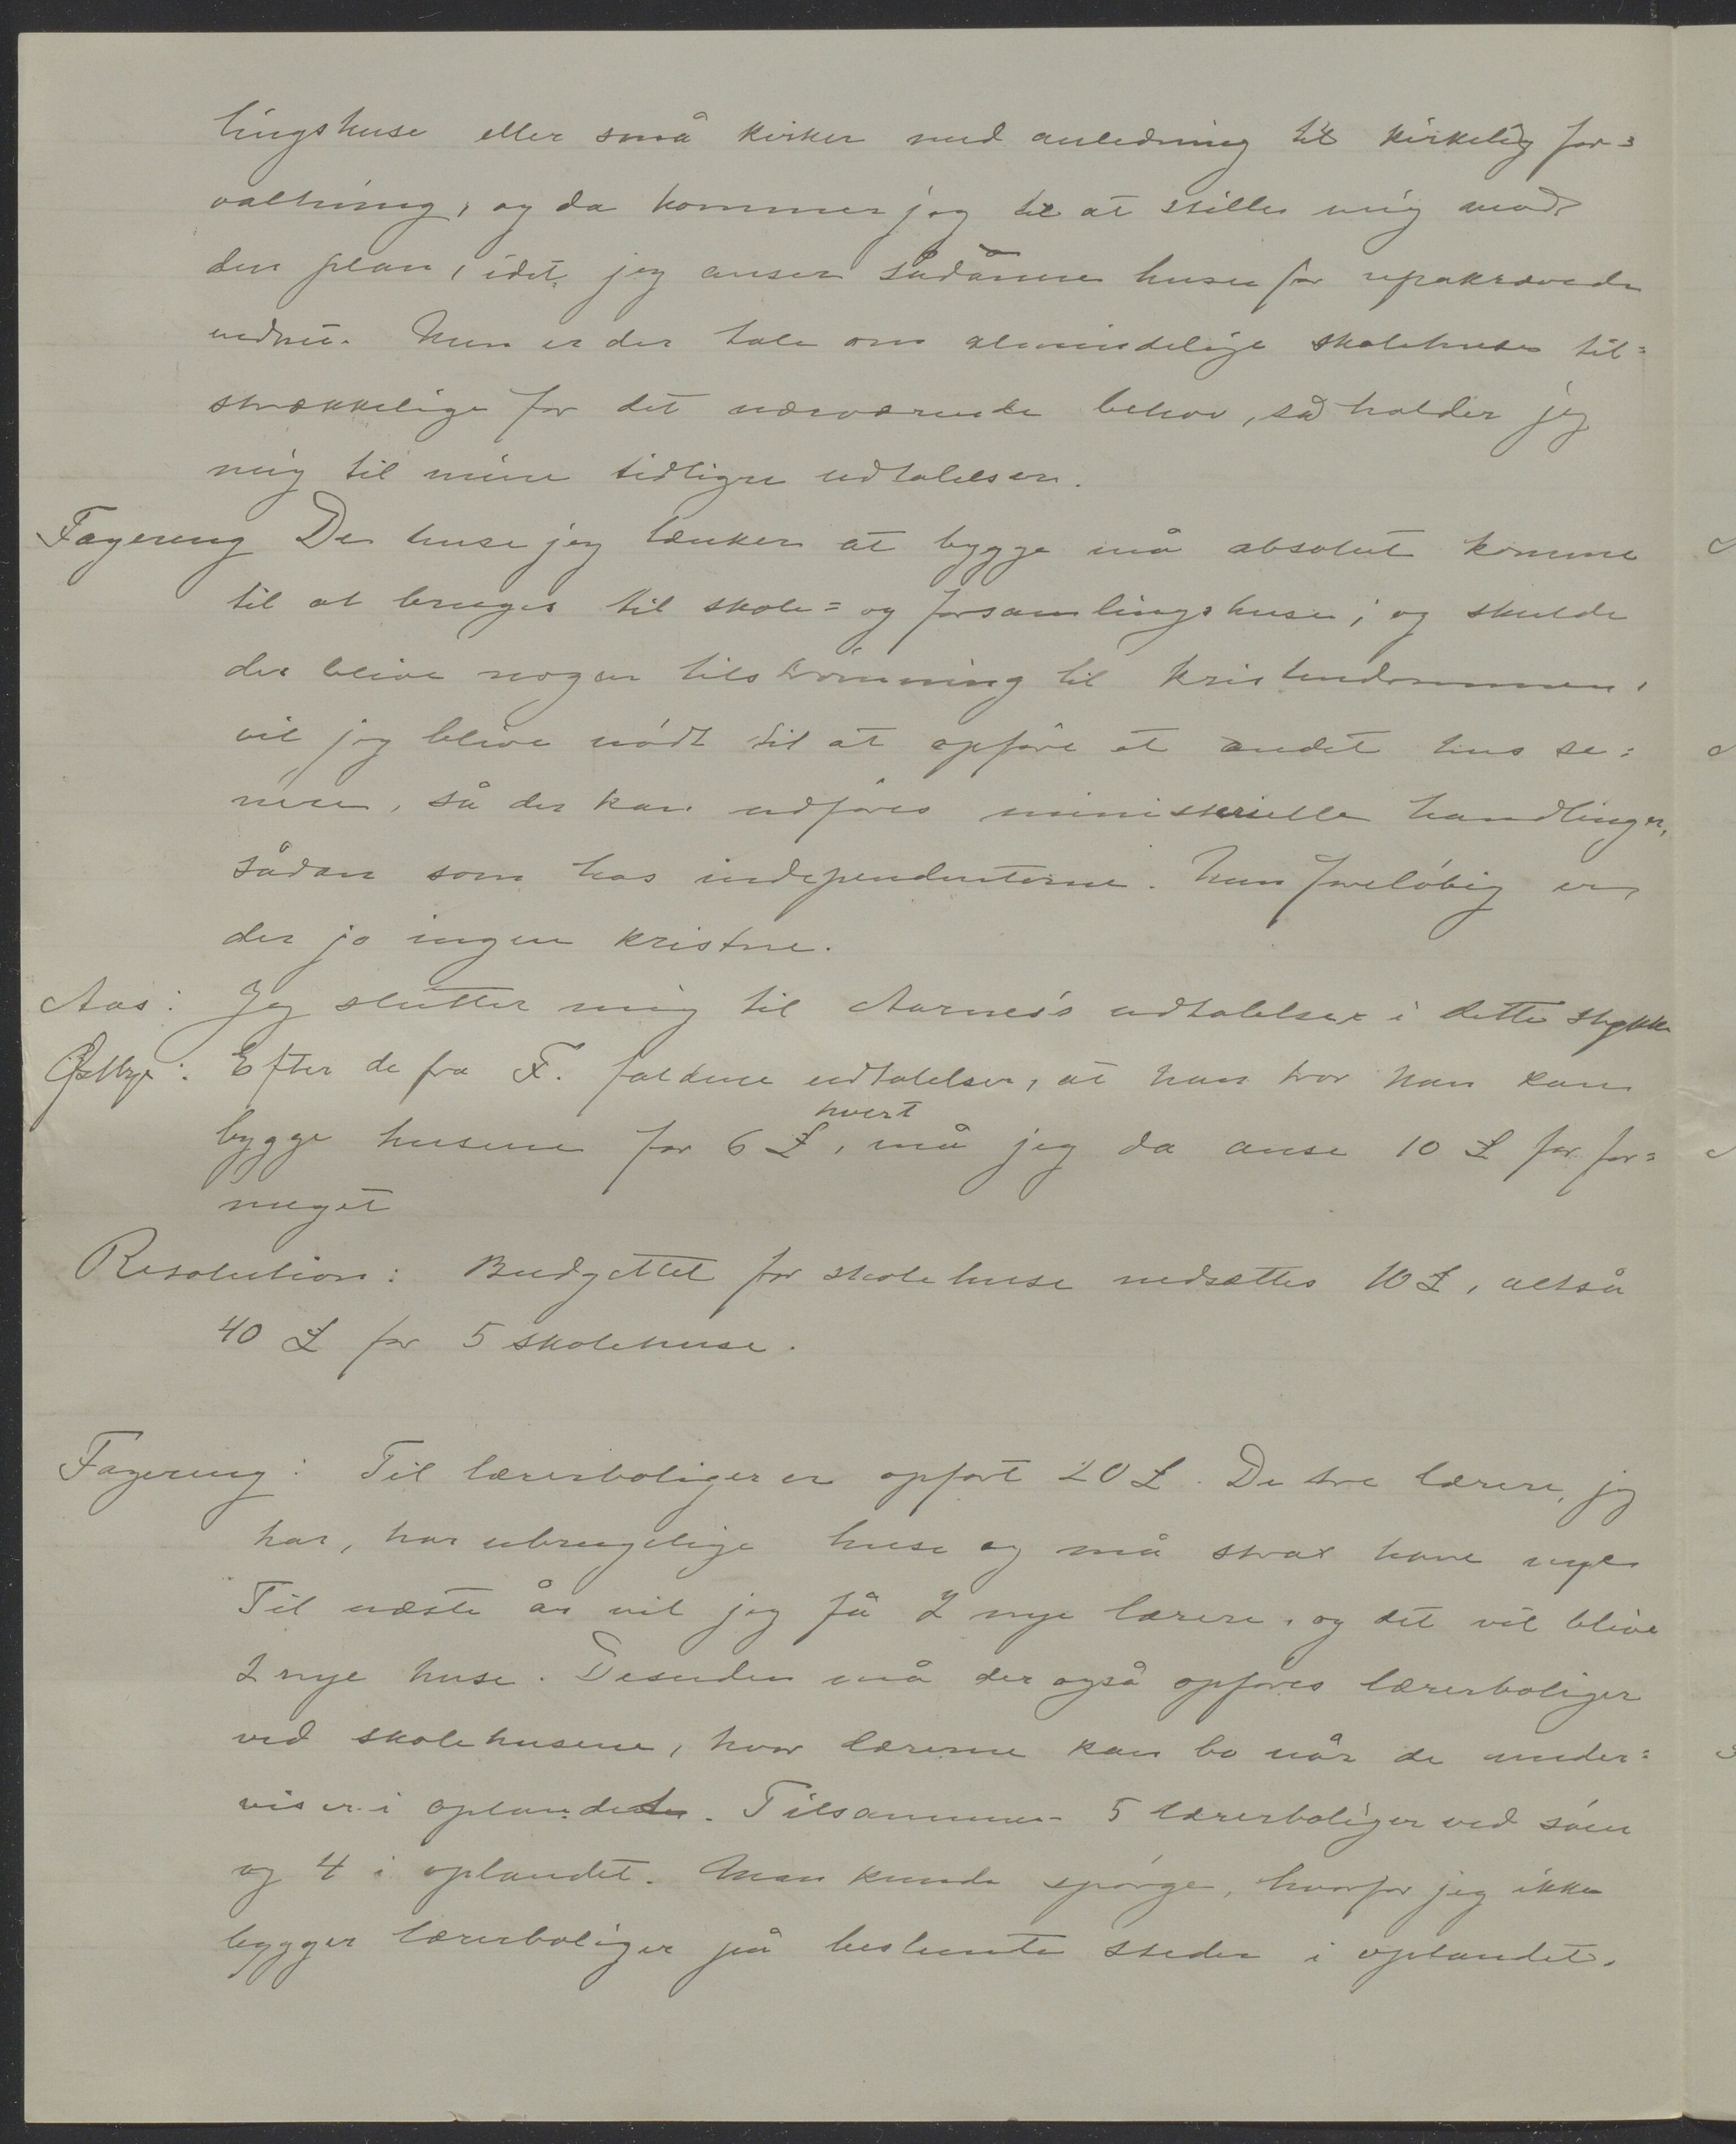 lingshuse eller små kirker med anledning til kirkelig for=
valtning, og da kommer jeg til at stille mig mod
den plan, idet jeg anser sådanne huse for upåkrævede
endnu. Men er der tale om almindelige skolehuse til=
strækkelige for det nærværende behov, så holder jeg
mig til mine tidligere udtalelser.
Fagereng De huse jeg tænker at bygge må absolut komme
til at bruges til skole= og forsamlingshuse; og skulde
der blive nogen tilströmning til kristendommen,
vil jeg blive nödt til at opföre et andet hus se=
nere, så der kan udföres ministerielle handlinger,
sådan som hos independenterne. Men forelöbig er
der jo ingen kristne.
Aas: Jeg slutter mig til Aarnes's udtalelser i dette stykke
Östbye: Efter de fra F. faldne udtalelser, at han tror han kan
bygge husene for 6 £ hvert, må jeg da anse 10 £ for for=
meget
Resolution: Budgettet for skolehuse nedsættes 10 £, altså
40 £ for 5 skolehuse.
Fagereng: Til lærerboliger er opfört 20 £. De tre lærere, jeg
har, har ubrugelige huse og må strax have nye.
Til næste år vil jeg få 2 nye lærere, og det vil blive
2 nye huse. Desuden må der også opföres lærerboliger
ved skolehusene, hvor lærerne kan bo når de under=
viser i oplandet. Tilsammen 5 lærerboliger ved söen
og 4 i oplandet. Man kunde spörge, hvorfor jeg ikke
bygger lærerboliger på bestemte steder i oplandet.